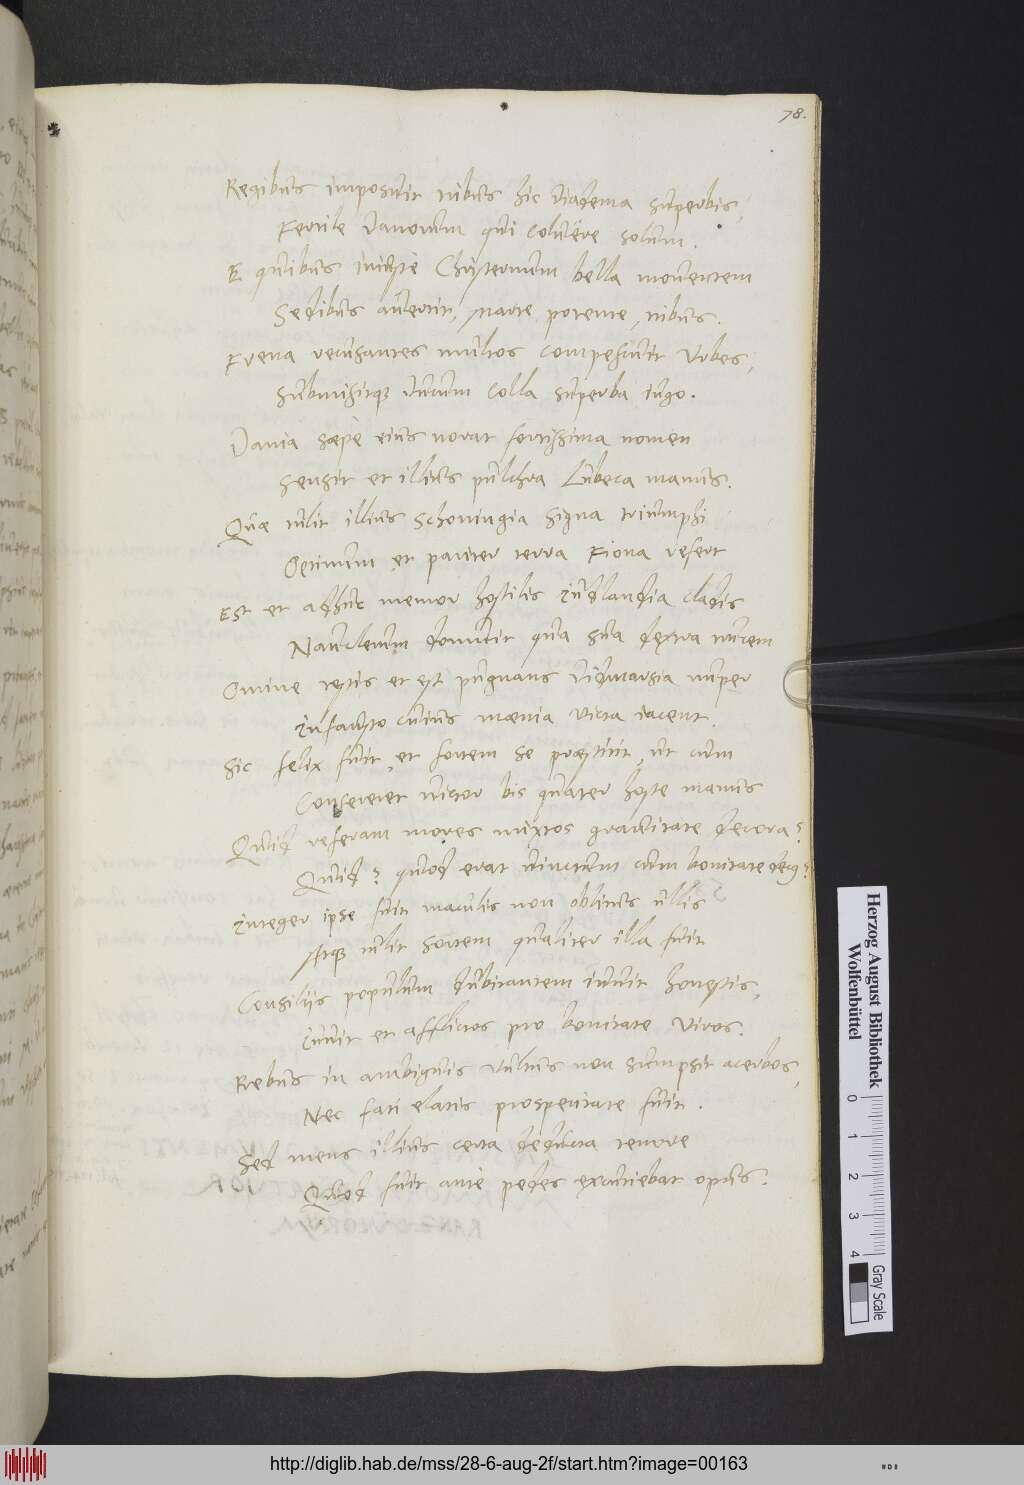 78.
Regibus imposuit tribus hic diadema superbis,
Fertile Danorum qui coluêre solum.
E quibus iniustè Christernum bella moventem
Sedibus avertit, Marte potente, tribus.
Frena recusantes multos compescuit Urbes,
Submisitque ducum colla superba iugo.
Dania sæpè eius norat fortissima nomen
Sensit et illius pulchra Lubeca manus.
Quæ tulit illius Schoningia signa triumphi
Optimum et pariter terra Fiona refert
Est et adhuc memor hostilis Jutlandia cladis
Nauclerum domuit qua sua dextra trucem
Omine testis et est pugnans Ditmarsia nuper
Infausto cuius mænia victa iacent.
Sic felix fuit, et fortem se præstitit, ut cum
Consereret victor bis quater hoste manus
Quid referam mores mixtos gravitate decora?
Quid? quod erat vinctum cum bonitate decus?
Integer ipse fuit maculis non oblitus ullis
Atque tulit sortem qualiter illa fuit
Consilijs populum dubitantem iuvit honestis,
Iuvit et afflictos pro bonitate Viros.
Rebus in ambiguis vultus non sumpsit acerbos,
Nec fati elatus prosperitate fuit.
Sed mens illius certa deducta tenore
Quod fuit antè pedes exutiebat opus.
Herzog August Bibliothek
Wolfenbüttel
0 1 2 3 4
Gray Scale
http://diglib.hab.de/mss/28-6-aug-2f/start.htm?image=00163